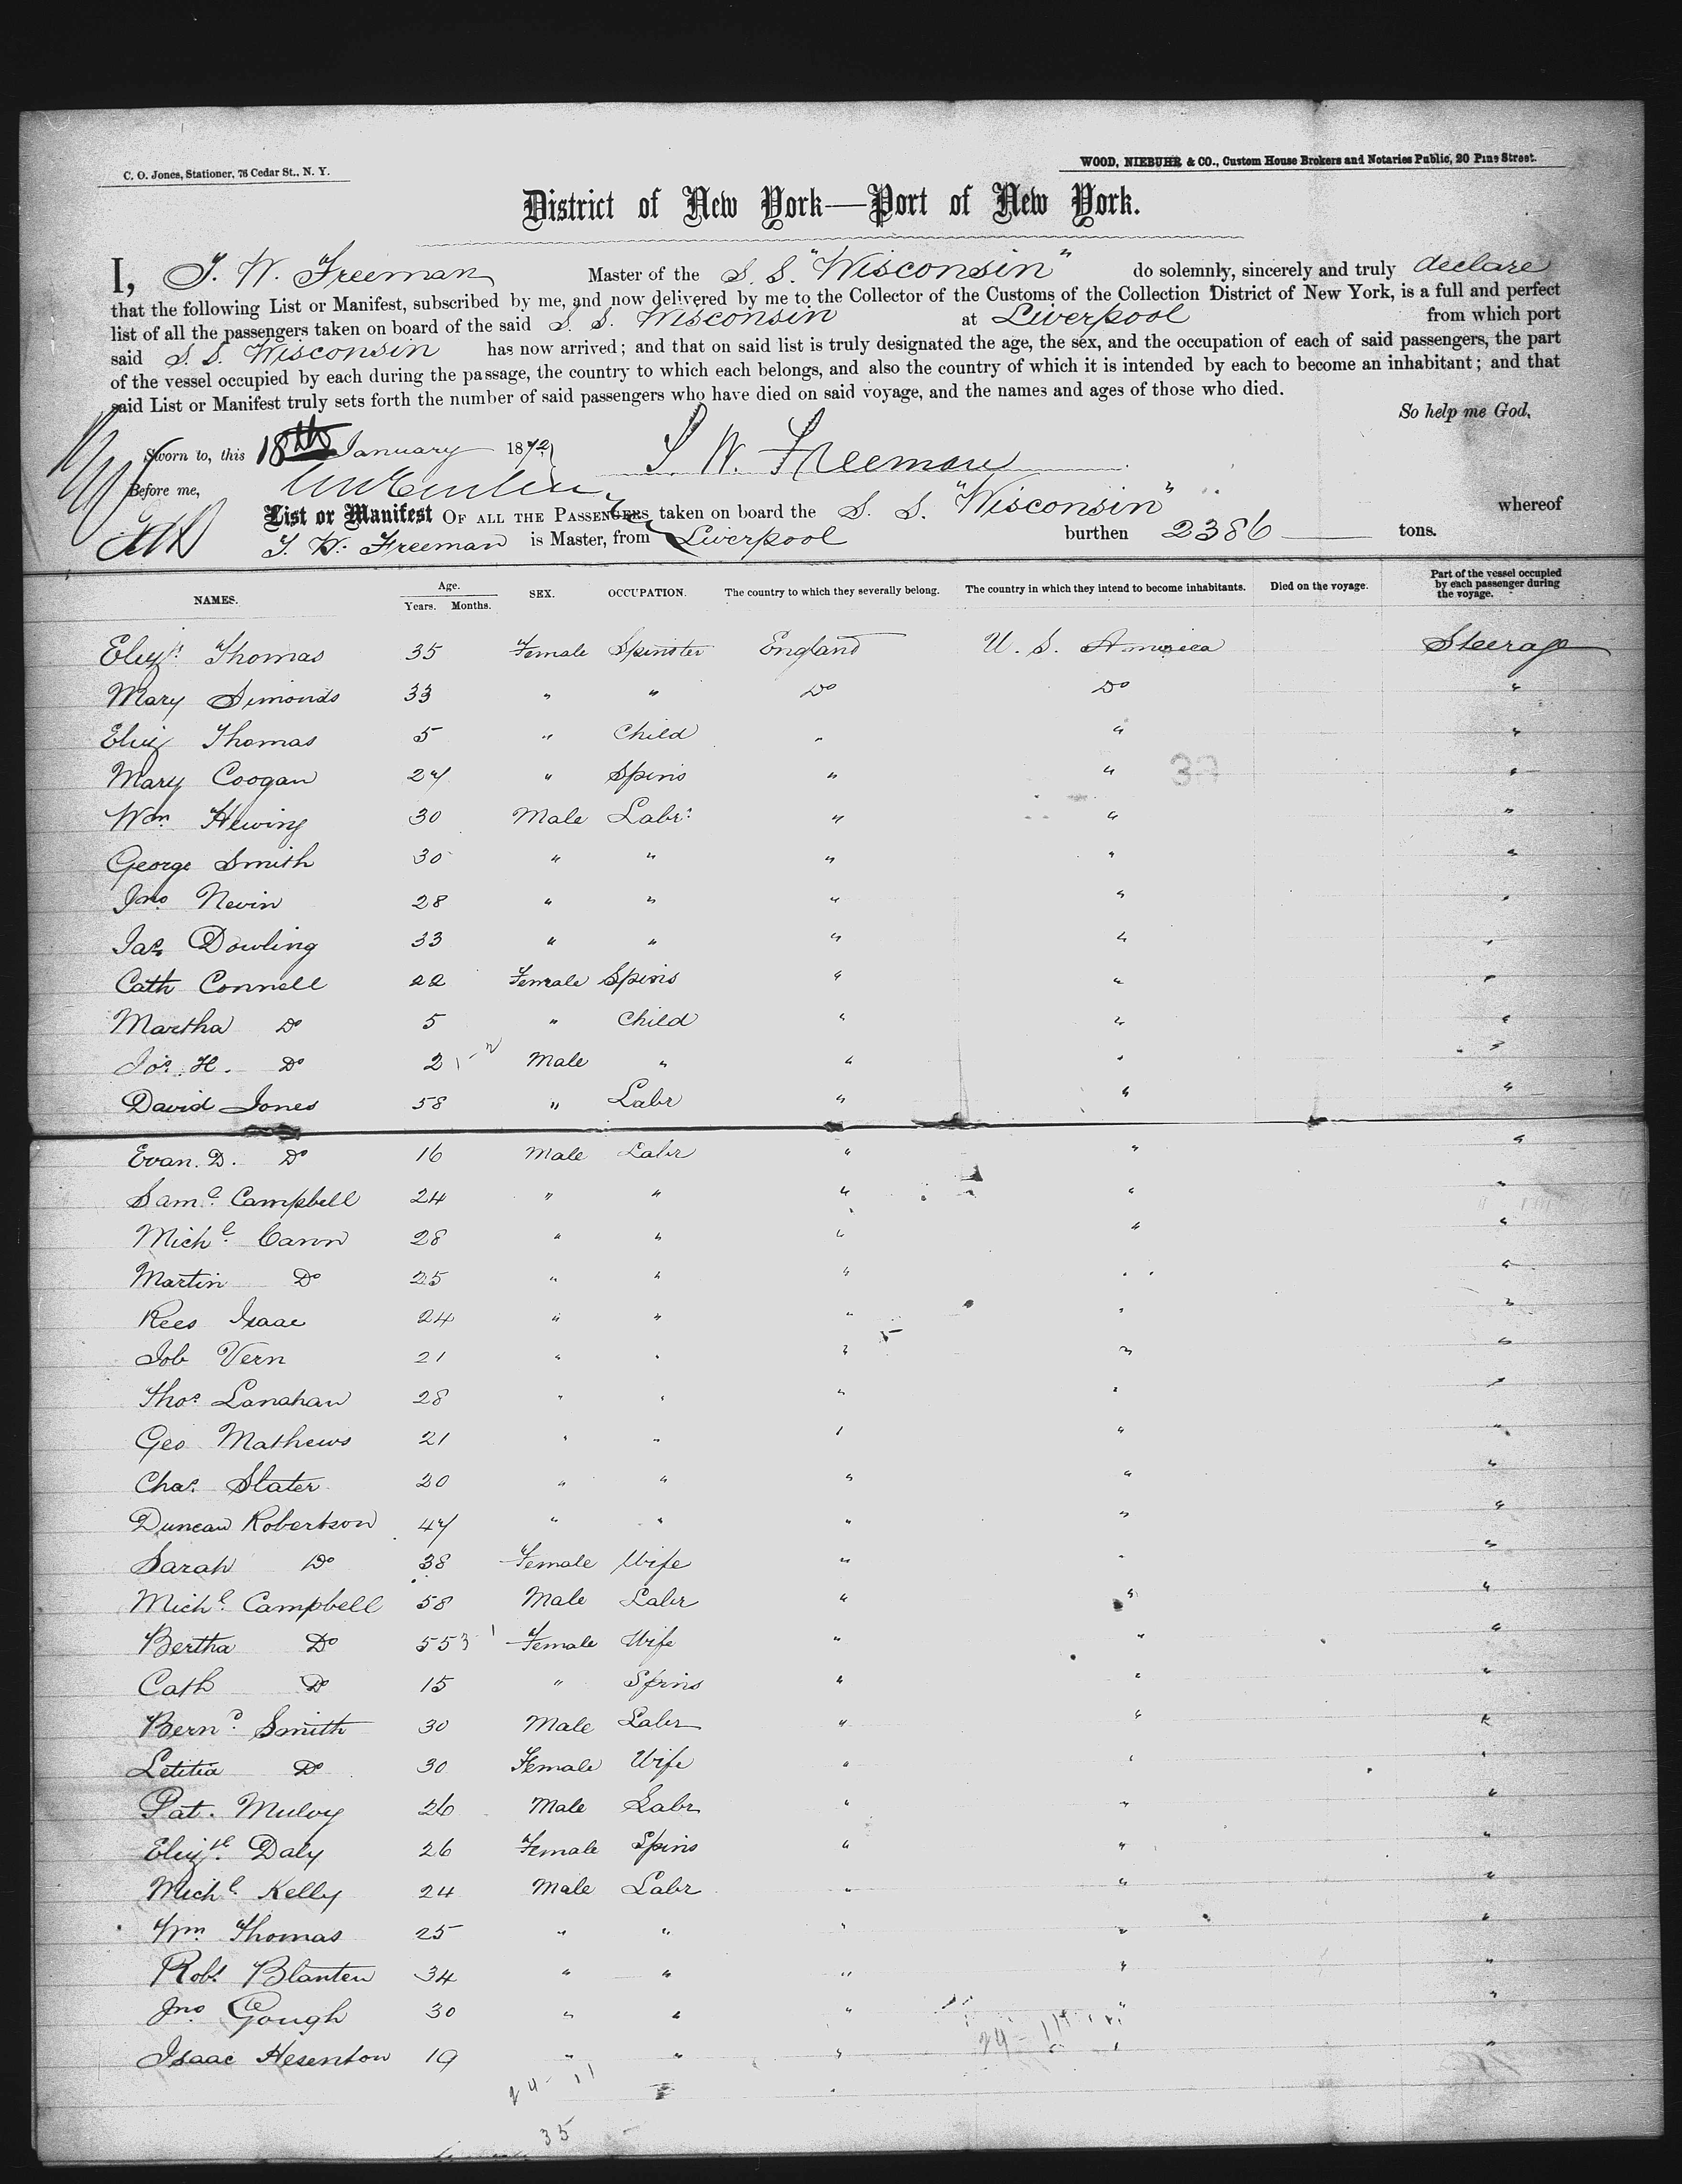 C. O. Jones, Stationer, 76 Cedar St., N. Y.
WOOD, NIEBUHR & CO., Custom House Brokers and Notaries Public, 20 Pine Street.
District of New York—Port of New York.
I, T. W. Freeman Master of the S. S. "Wisconsin" do solemnly, sincerely and truly declare
that the following List or Manifest, subscribed by me, and now delivered by me to the Collector of the Customs of the Collection District of New York, is a full and perfect
list of all the passengers taken on board of the said S. S. Wisconsin at Liverpool from which port
said S. S. Wisconsin has now arrived; and that on said list is truly designated the age, the sex, and the occupation of each of said passengers, the part
of the vessel occupied by each during the passage, the country to which each belongs, and also the country of which it is intended by each to become an inhabitant; and that
said List or Manifest truly sets forth the number of said passengers who have died on said voyage, and the names and ages of those who died.
So help me God,
Sworn to, this 18th January 1872 T. W. Freeman
Before me,
List or Manifest OF ALL THE PASSENGERS taken on board the S. S. "Wisconsin" whereof
T. W. Freeman is Master, from Liverpool burthen 2386 tons.
NAMES. Age. Years. Months. SEX. OCCUPATION. The country to which they severally belong. The country in which they intend to become inhabitants. Died on the voyage. Part of the vessel occupied by each passenger during the voyage.
Elizth Thomas 35 Female Spinster England U. S. America Steerage
Mary Simonds 33 " " Do Do "
Eliz Thomas 5 " Child " " "
Mary Coogan 24 " Spins " " "
Wm Hewing 30 Male Labr " " "
George Smith 30 " " " " "
Jno Nevin 28 " " " " "
Jas Dowling 33 " " " " "
Cath Connell 22 Female Spins " " "
Martha Do 5 " Child " " "
Jos. H. Do 2 Male " " " "
David Jones 58 " Labr " " "
Evan. D. Do 16 Male Labr " " "
Saml Campbell 24 " " " " "
Michl Cann 28 " " " " "
Martin Do 25 " " " " "
Rees Isaac 24 " " " " "
Job Vern 21 " " " " "
Thos Lanahan 28 " " " " "
Geo Mathews 21 " " " " "
Chas Slater 20 " " " " "
Duncan Robertson 47 " " " " "
Sarah Do 38 Female Wife " " "
Michl Campbell 58 Male Labr " " "
Bertha Do 55 Female Wife " " "
Cath Do 15 " Spins " " "
Bernd Smith 30 Male Labr " " "
Letitia Do 30 Female Wife " " "
Pat. Mulvy 26 Male Labr " " "
Elizth Daly 26 Female Spins " " "
Michl Kelly 24 Male Labr " " "
Wm Thomas 25 " " " " "
Robt Blanten 34 " " " " "
Jno Gough 30 " " " " "
Isaac Hesenton 19 " " " " "
24 - 11
35